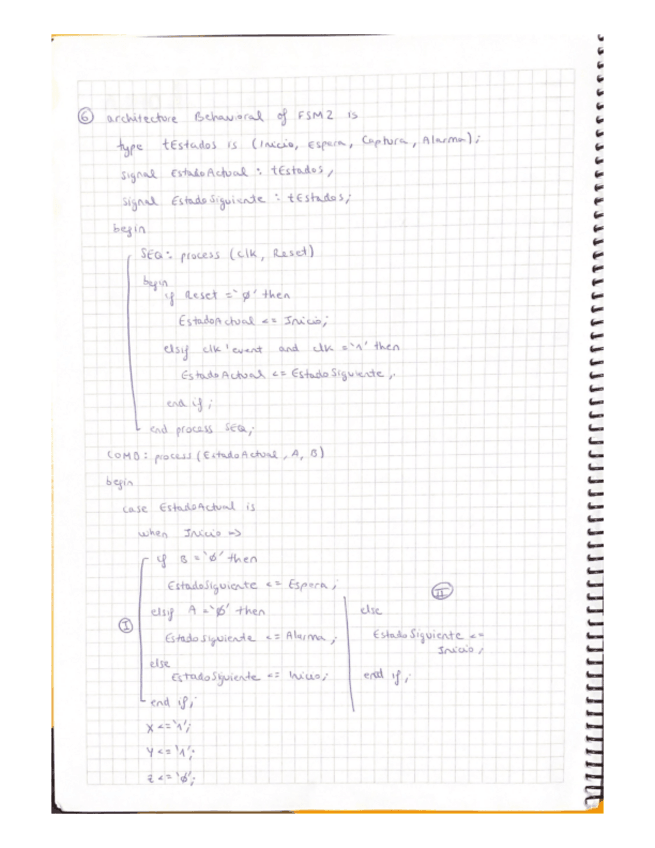 ⑥ architecture Behavioral of FSM2 is
type tEstados is (Inicio, Espera, Captura, Alarma);
signal EstadoActual : tEstados;
signal EstadoSiguiente : tEstados;
begin
SEQ: process (clk, Reset)
begin
if Reset = '0' then
EstadoActual <= Inicio;
elsif clk'event and clk = '1' then
EstadoActual <= EstadoSiguiente;
end if;
end process SEQ;
COMB: process (EstadoActual, A, B)
begin
case EstadoActual is
when Inicio =>
if B = '0' then
EstadoSiguiente <= Espera;
Ⓘ
elsif A = '0' then
EstadoSiguiente <= Alarma;
else
EstadoSiguiente <= Inicio;
end if;
II
else
EstadoSiguiente <=
Inicio;
end if;
X <= '1';
Y <= '1';
Z <= '0';